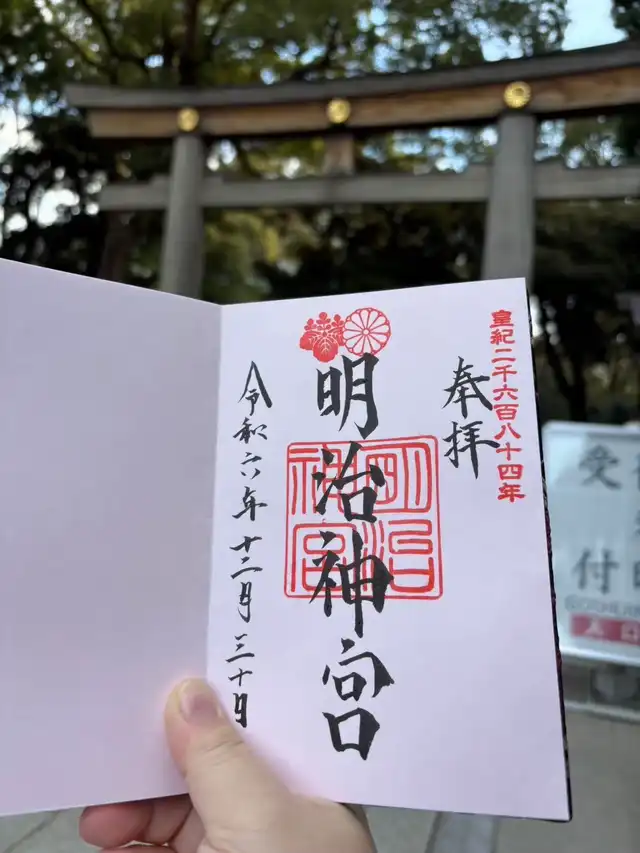 皇紀二千六百八十四年
奉拝
明治神宮
明治
神宮
令和六年十二月三十日
受付